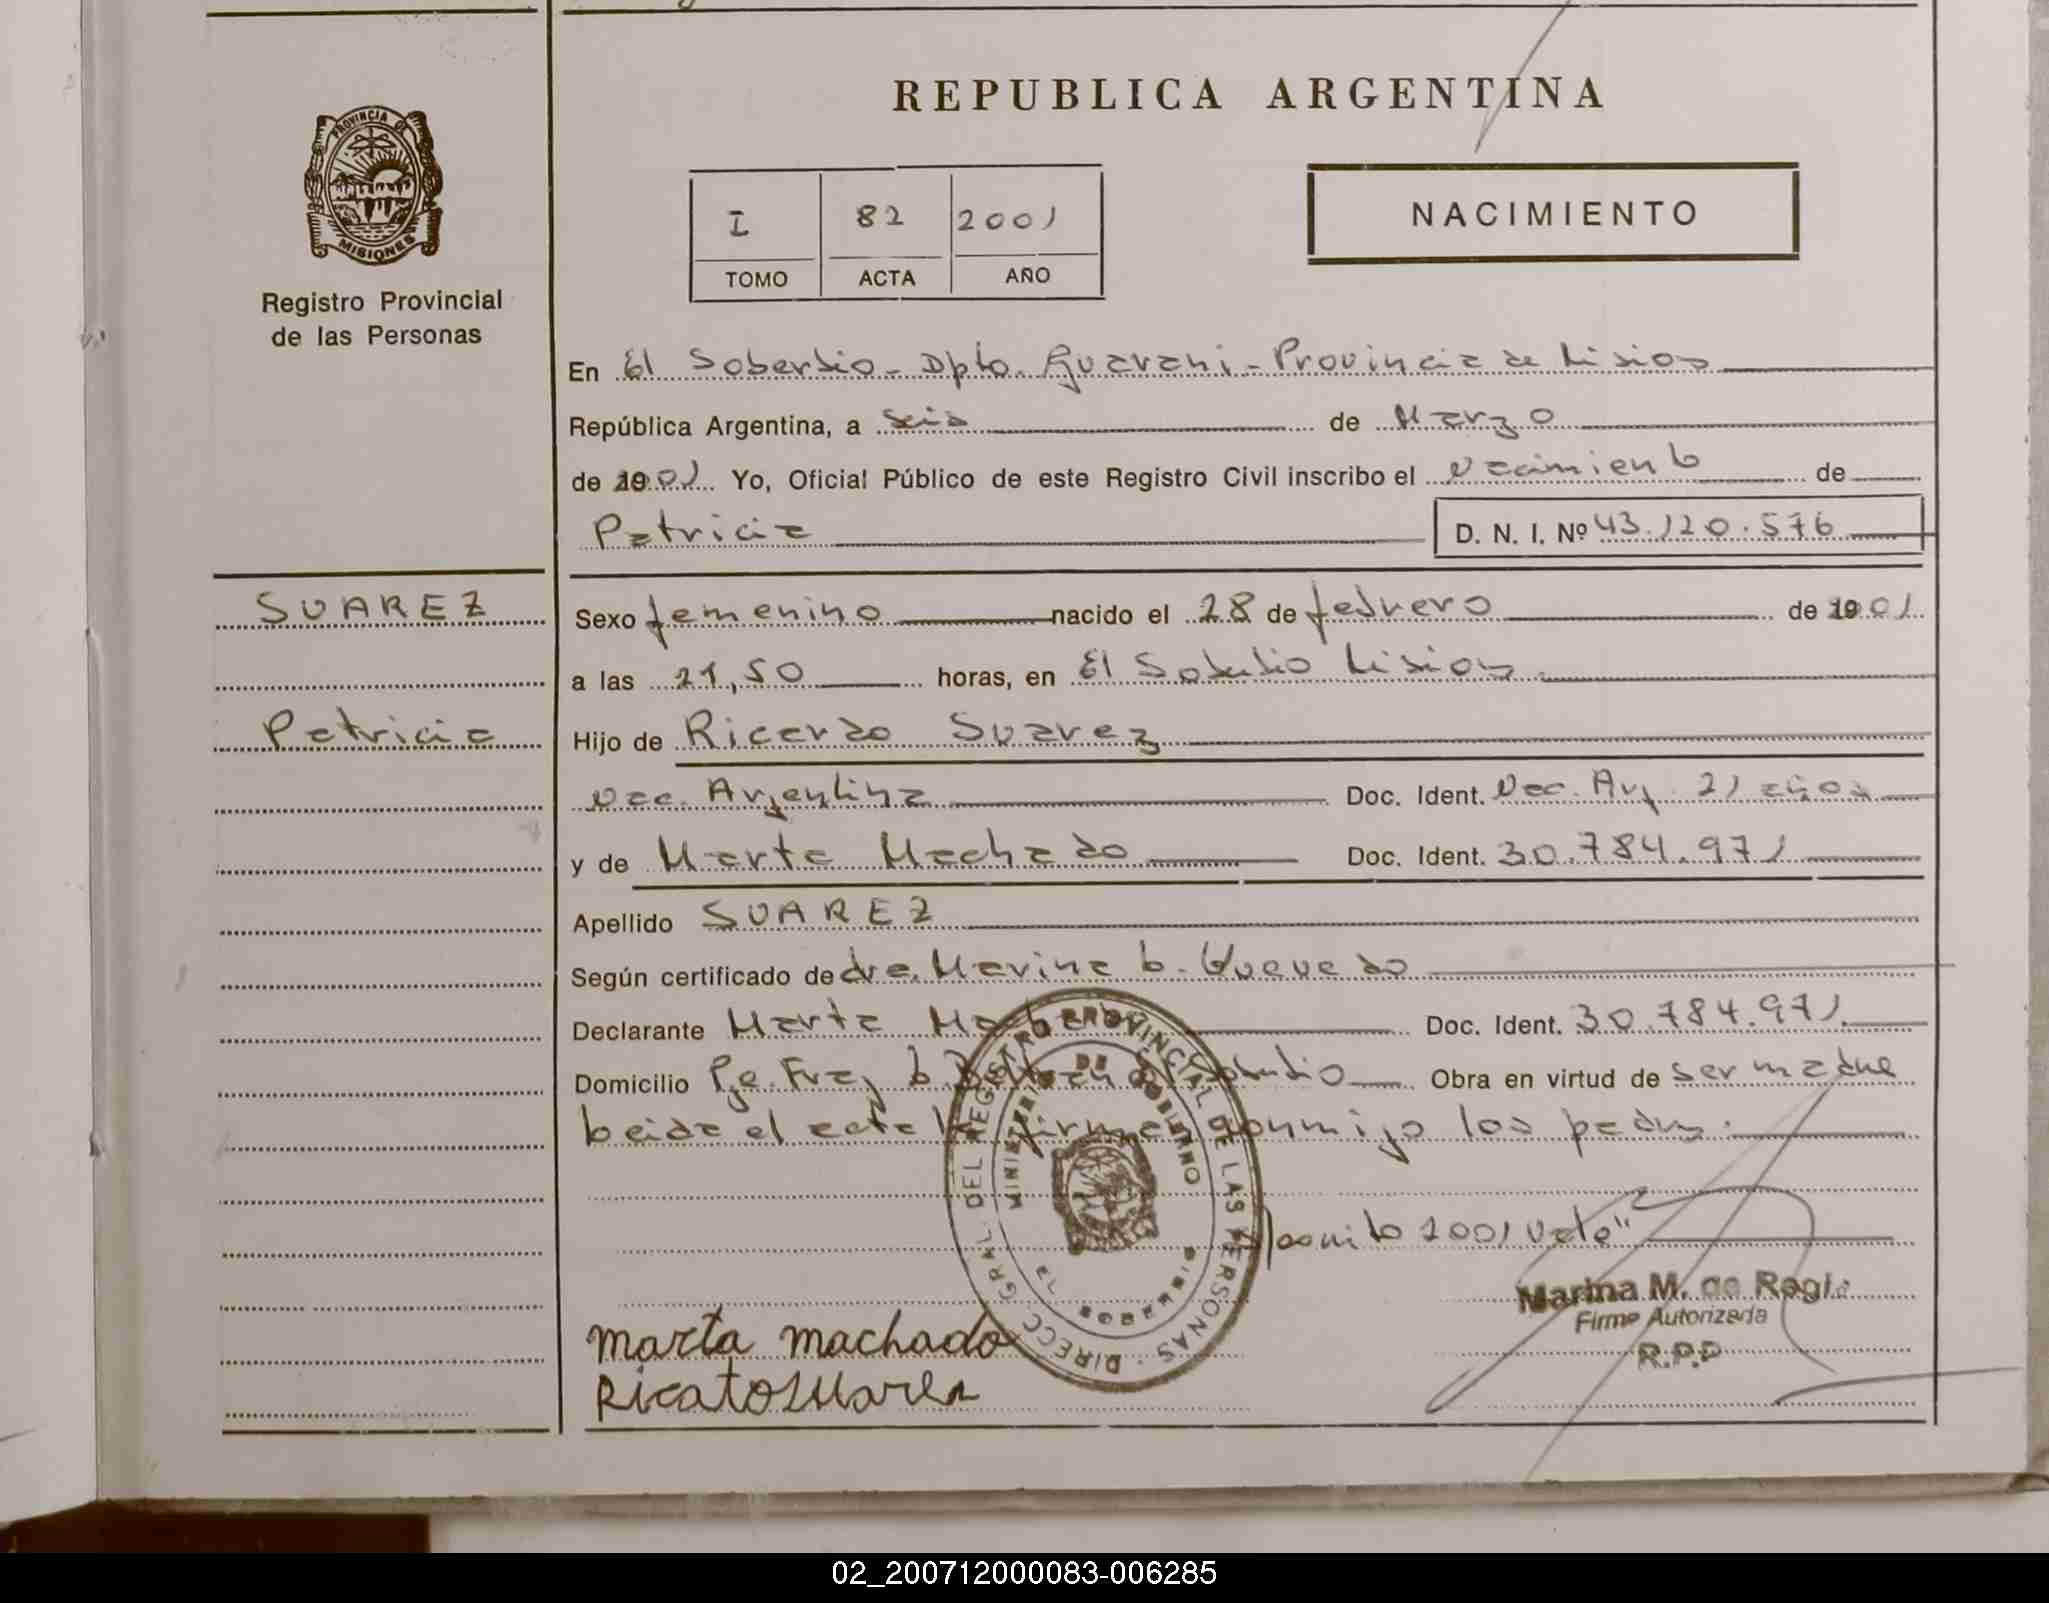 REPUBLICA ARGENTINA
PROVINCIA DE
MISIONES
Registro Provincial
de las Personas
I 82 2001
TOMO ACTA AÑO
NACIMIENTO
En El Soberbio - Dpto. Guarani - Provincia de Misiones
República Argentina, a seis de Marzo
de 2001 Yo, Oficial Público de este Registro Civil inscribo el nacimiento de
Patricia D. N. I. Nº 43.120.576
SUAREZ
Sexo femenino nacido el 28 de febrero de 2001
a las 21,50 horas, en El Soberbio Misiones
Patricia
Hijo de Ricardo Suarez
Nac. Argentina Doc. Ident. Nac. Arg. 21 años
y de Marta Machado Doc. Ident. 30.784.971
Apellido SUAREZ
Según certificado de dra. Marina b. Quevedo
Declarante Marta Machado Doc. Ident. 30.784.971
Domicilio Pje. Fray b. Beltran El Soberbio Obra en virtud de ser madre
Leida el acta la firman conmigo los padres.
2001 Vale"
DIRECC. GRAL. DEL REGISTRO PROVINCIAL DE LAS PERSONAS
MINISTERIO DE GOBIERNO
MISIONES
Marina M. de Regis
Firma Autorizada
R.P.P
marta machado
Ricato suarez
02_200712000083-006285